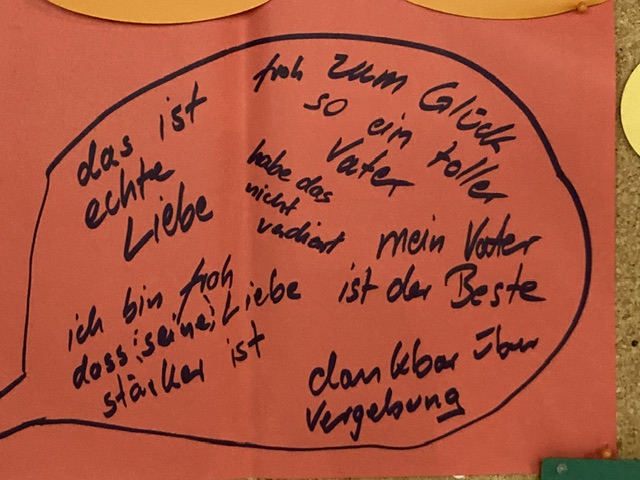 das ist
echte
Liebe
froh zum Glück
so ein toller
Vater
habe das
nicht
vadient
mein Vater
ist der Beste
ich bin froh
dass seine Liebe
stärker ist
dankbar über
Vergebung